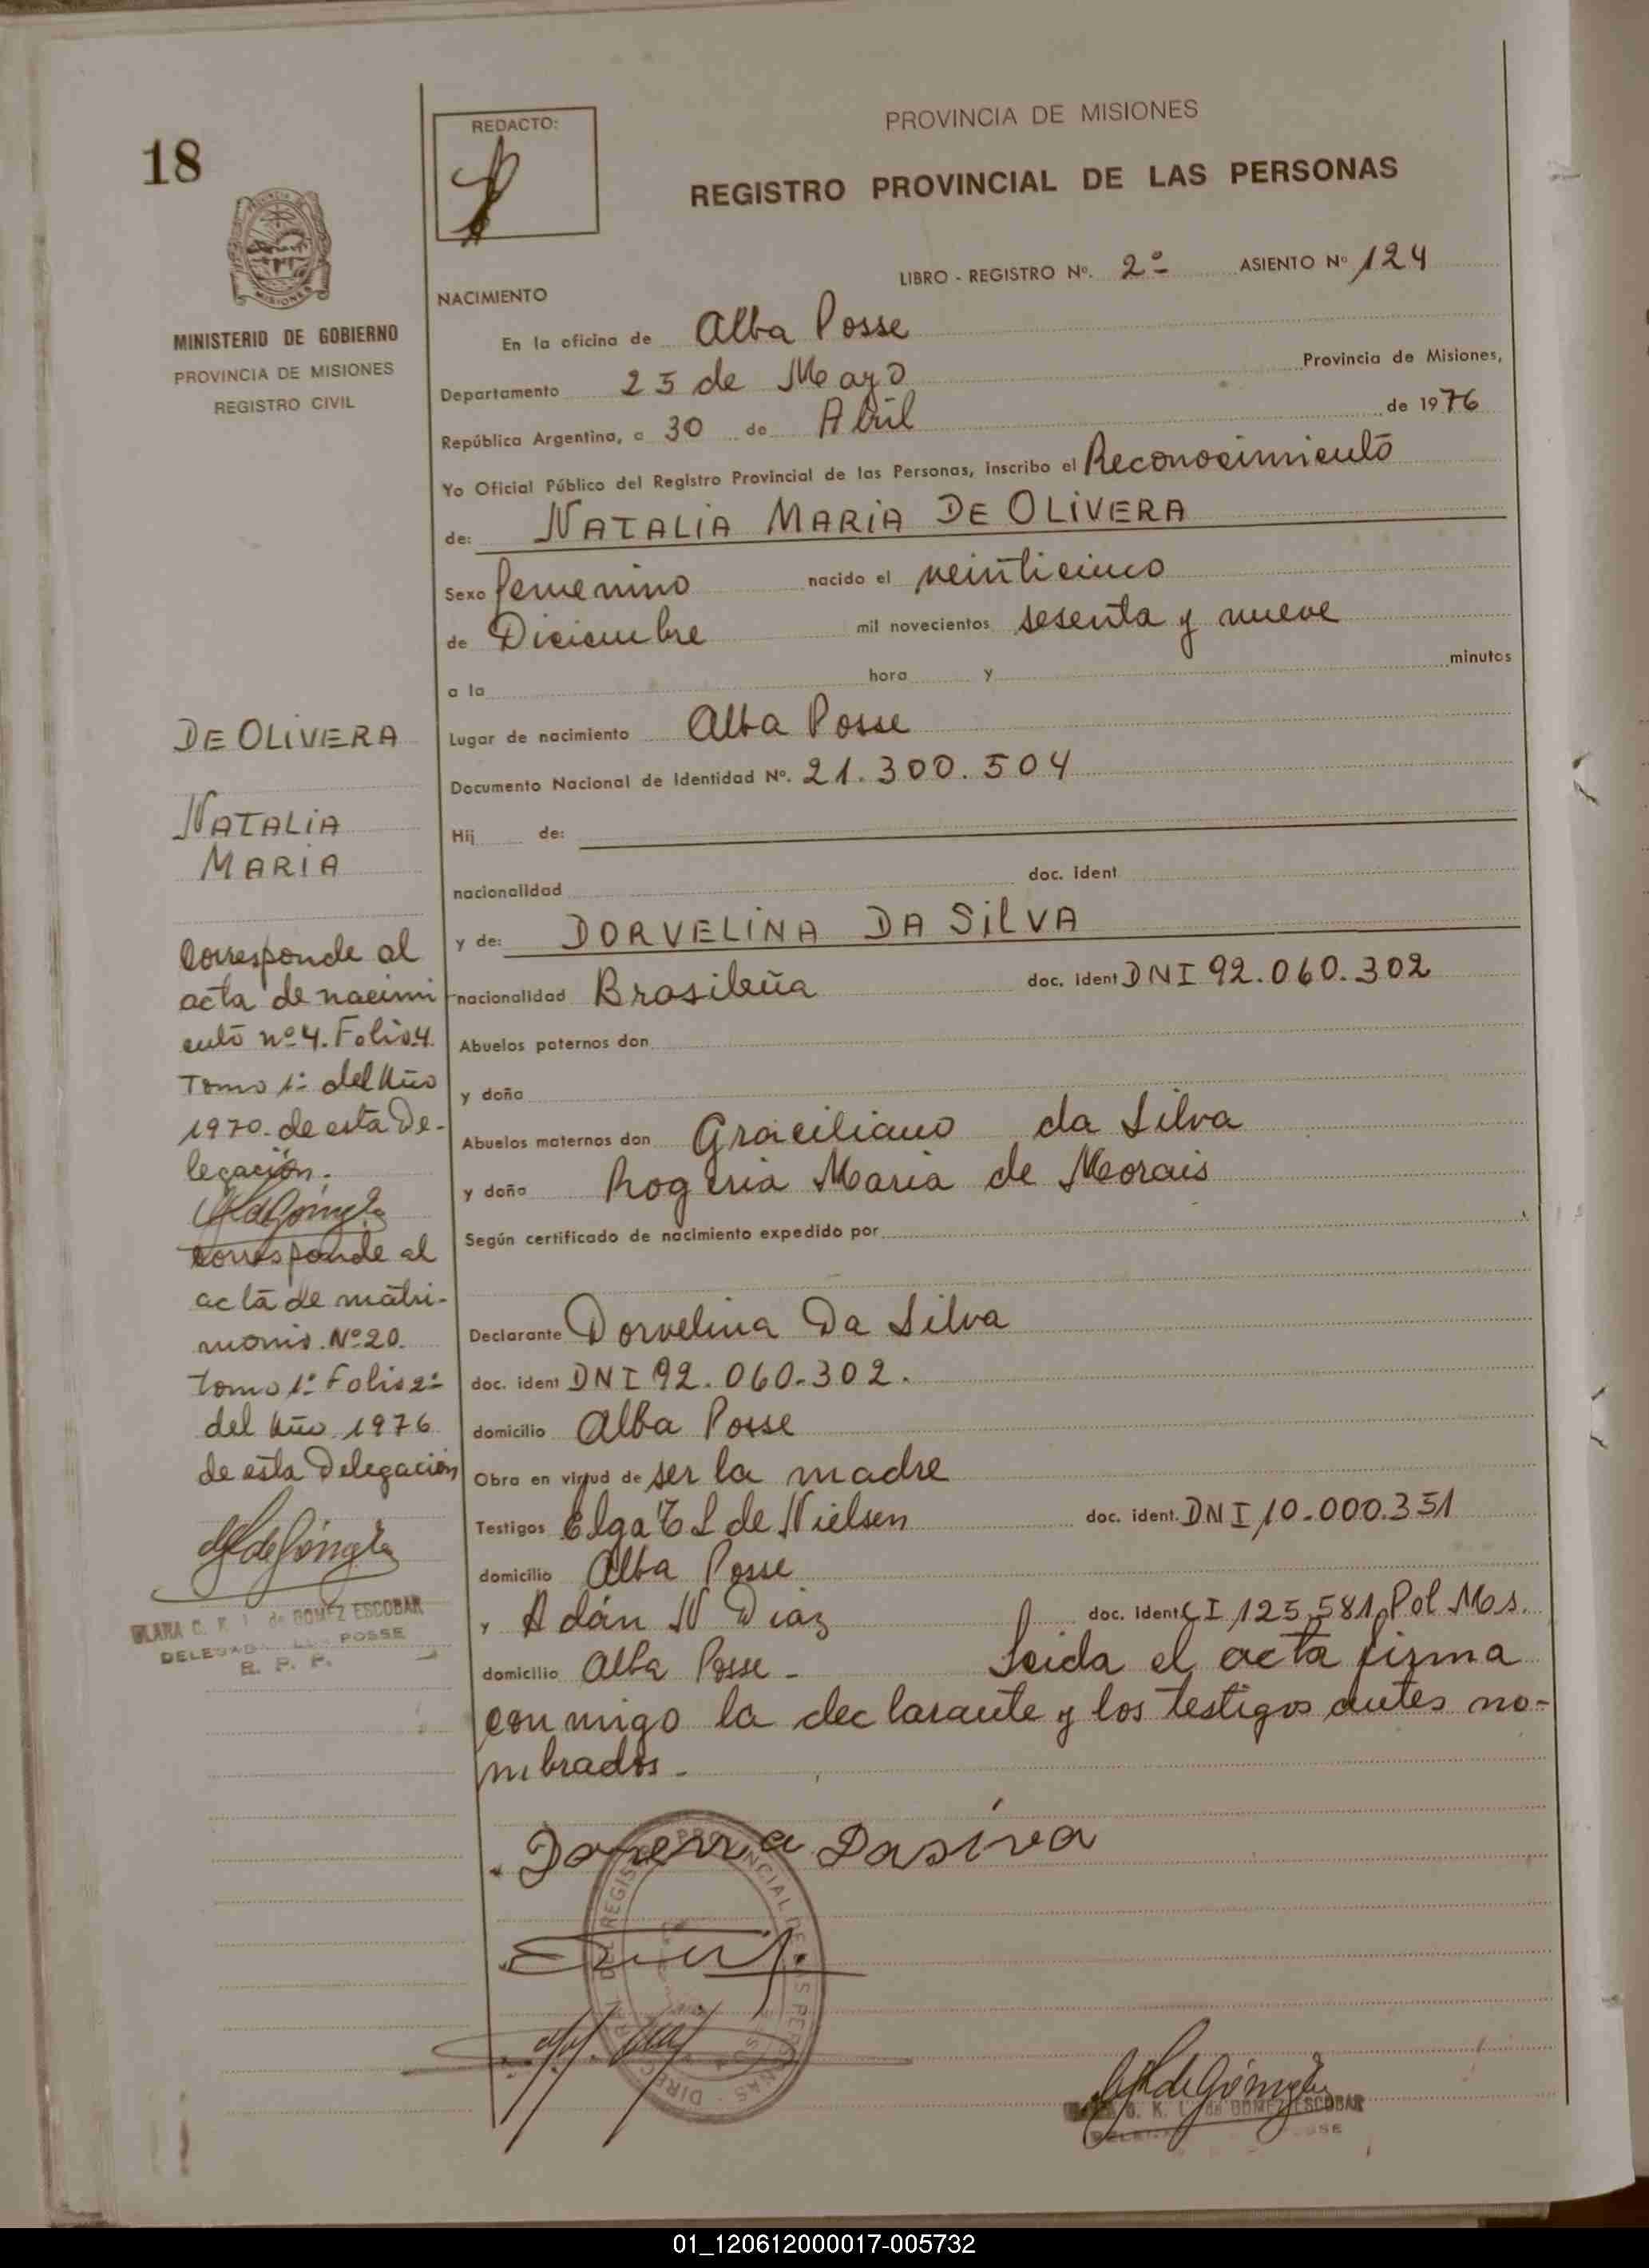 18
REDACTO:
PROVINCIA DE MISIONES
REGISTRO PROVINCIAL DE LAS PERSONAS
MISIONES
MINISTERIO DE GOBIERNO
PROVINCIA DE MISIONES
REGISTRO CIVIL
LIBRO - REGISTRO Nº. 2º ASIENTO Nº 124
NACIMIENTO
En la oficina de Alba Posse
Departamento 25 de Mayo Provincia de Misiones,
República Argentina, a 30 de Abril de 1976
Yo Oficial Público del Registro Provincial de las Personas, inscribo el Reconocimiento
de: NATALIA MARIA DE OLIVERA
Sexo femenino nacido el veinticinco
de Diciembre mil novecientos sesenta y nueve
a la hora y minutos
Lugar de nacimiento Alba Posse
Documento Nacional de Identidad Nº. 21.300.504
Hij de:
nacionalidad doc. ident
y de: DORVELINA DA SILVA
nacionalidad Brasileña doc. ident DNI 92.060.302
Abuelos paternos don
y doña
Abuelos maternos don Graciliano da Silva
y doña Rogeria Maria de Morais
Según certificado de nacimiento expedido por
Declarante Dorvelina Da Silva
doc. ident DNI 92.060.302.
domicilio Alba Posse
Obra en virtud de ser la madre
Testigos Elga de Nielsen doc. ident. DNI 10.000.351
domicilio Alba Posse
y Adán N Diaz doc. ident CI 125.581 Pol Ms.
domicilio Alba Posse - Leida el acta firma
conmigo la declarante y los testigos antes no-
mbrados.-
DE OLIVERA
NATALIA
MARIA
Corresponde al
acta de nacimi
ento nº 4. Folio 4.
Tomo 1º del Año
1970. de esta De-
legación.
Corresponde al
acta de matri-
monio. Nº 20.
Tomo 1º Folio 2º
del Año 1976
de esta Delegación
CLARA C. K. L. de GOMEZ ESCOBAR
POSSE
R. P. P.
C. K. L. de GOMEZ ESCOBAR
01_120612000017-005732